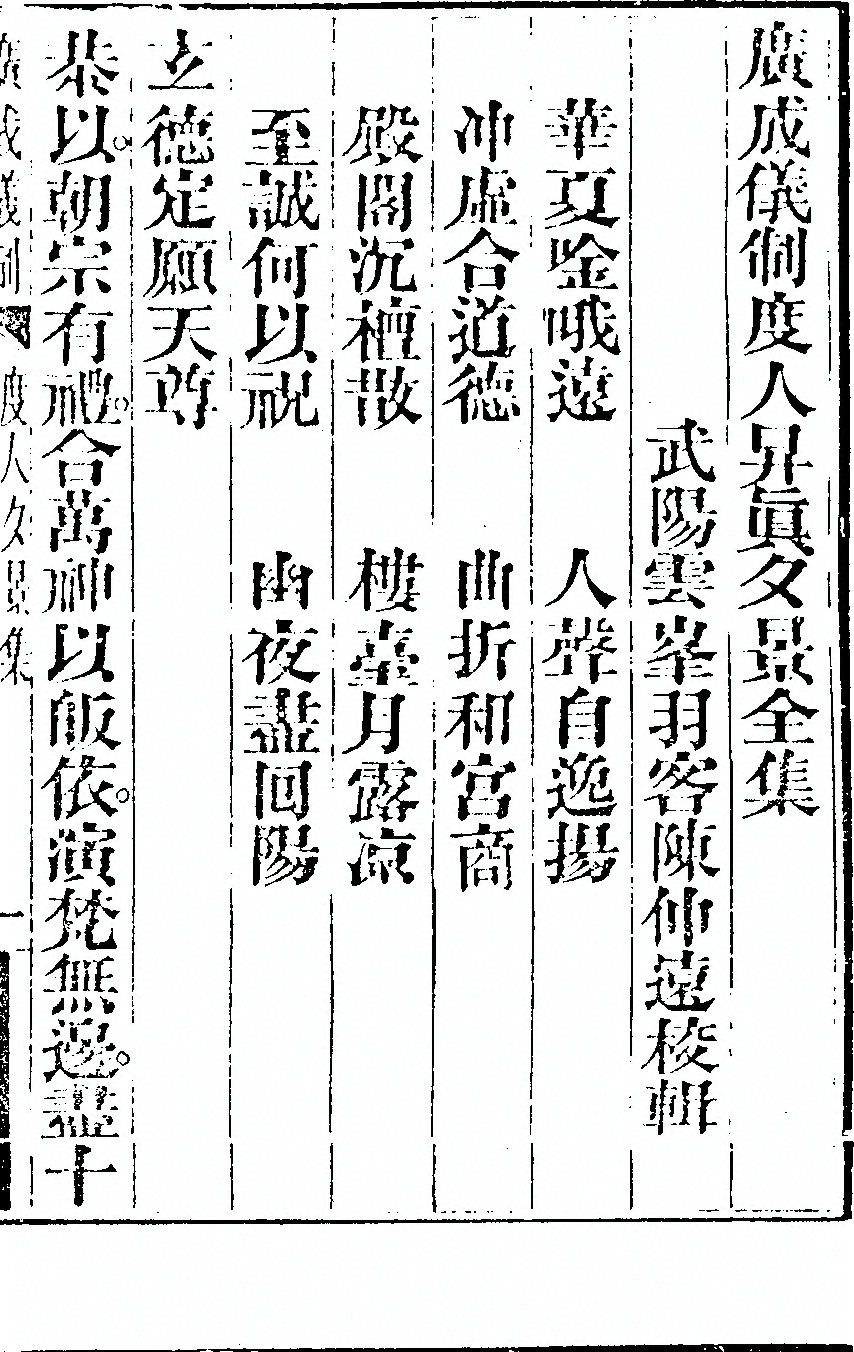 廣成儀制度人昇眞夕景全集
武陽雲峯羽客陳仲遠校輯
華夏唫哦遠　人聲自逸揚
冲虛合道德　曲折和宮商
殿閣沉檀散　樓臺月露凉
至誠何以祝　幽夜盡回陽
立德定願天尊
恭以。朝宗有禮。合萬神以皈依。演梵無邊。盡十
廣成儀制　度人夕景集　一